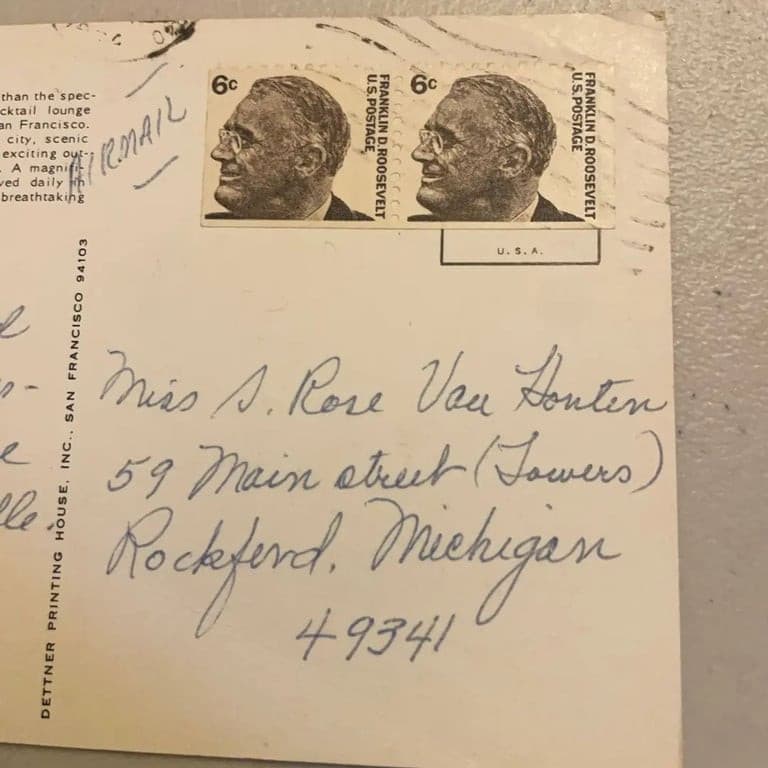 than the spec-
cktail lounge
an Francisco.
city, scenic
exciting out-
. A magnifi-
ved daily in
breathtaking
AIRMAIL
6c
FRANKLIN D. ROOSEVELT
U.S. POSTAGE
6c
FRANKLIN D. ROOSEVELT
U.S. POSTAGE
U.S.A.
DETTNER PRINTING HOUSE, INC., SAN FRANCISCO 94103
Miss S. Rose Van Houten
59 Main street (Towers)
Rockford, Michigan
49341